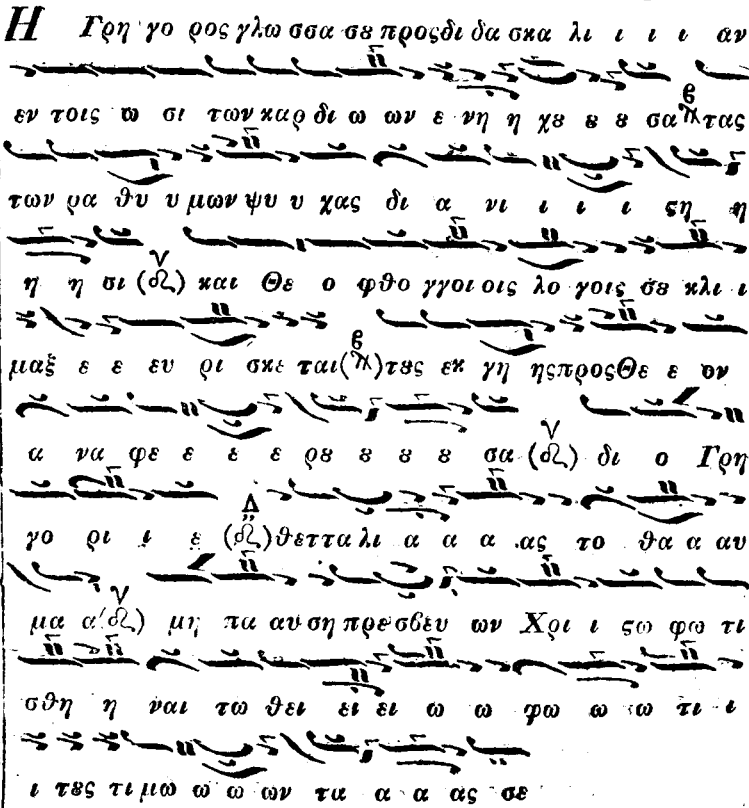 Η Γρη γο ρος γλω σσα σȣ προς δι δα σκα λι ι ι ι αν
εν τοις ω σι των καρ δι ω ων ε νη η χȣ ȣ ȣ σα τας
των ρα θυ υ μων ψυ υ χας δι α νι ι ι ι ϛη η
η η σι (ν) και Θε ο φθο γγοι οις λο γοις σȣ κλι ι
μαξ ε ε ευ ρι σκε ται τȣς εκ γη ης προς Θε ε ον
α να φε ε ε ε ρȣ ȣ ȣ ȣ σα (ν) δι ο Γρη
γο ρι ι ε (Δ) θεττα λι α α α ας το θα α αυ
μα α (ν) μη πα αυ ση πρε σβευ ων Χρι ι ϛω φω τι
σθη η ναι τω θει ει ει ω ω φω ω ω τι ι
ι τȣς τι μω ω ω ων τα α α ας σε